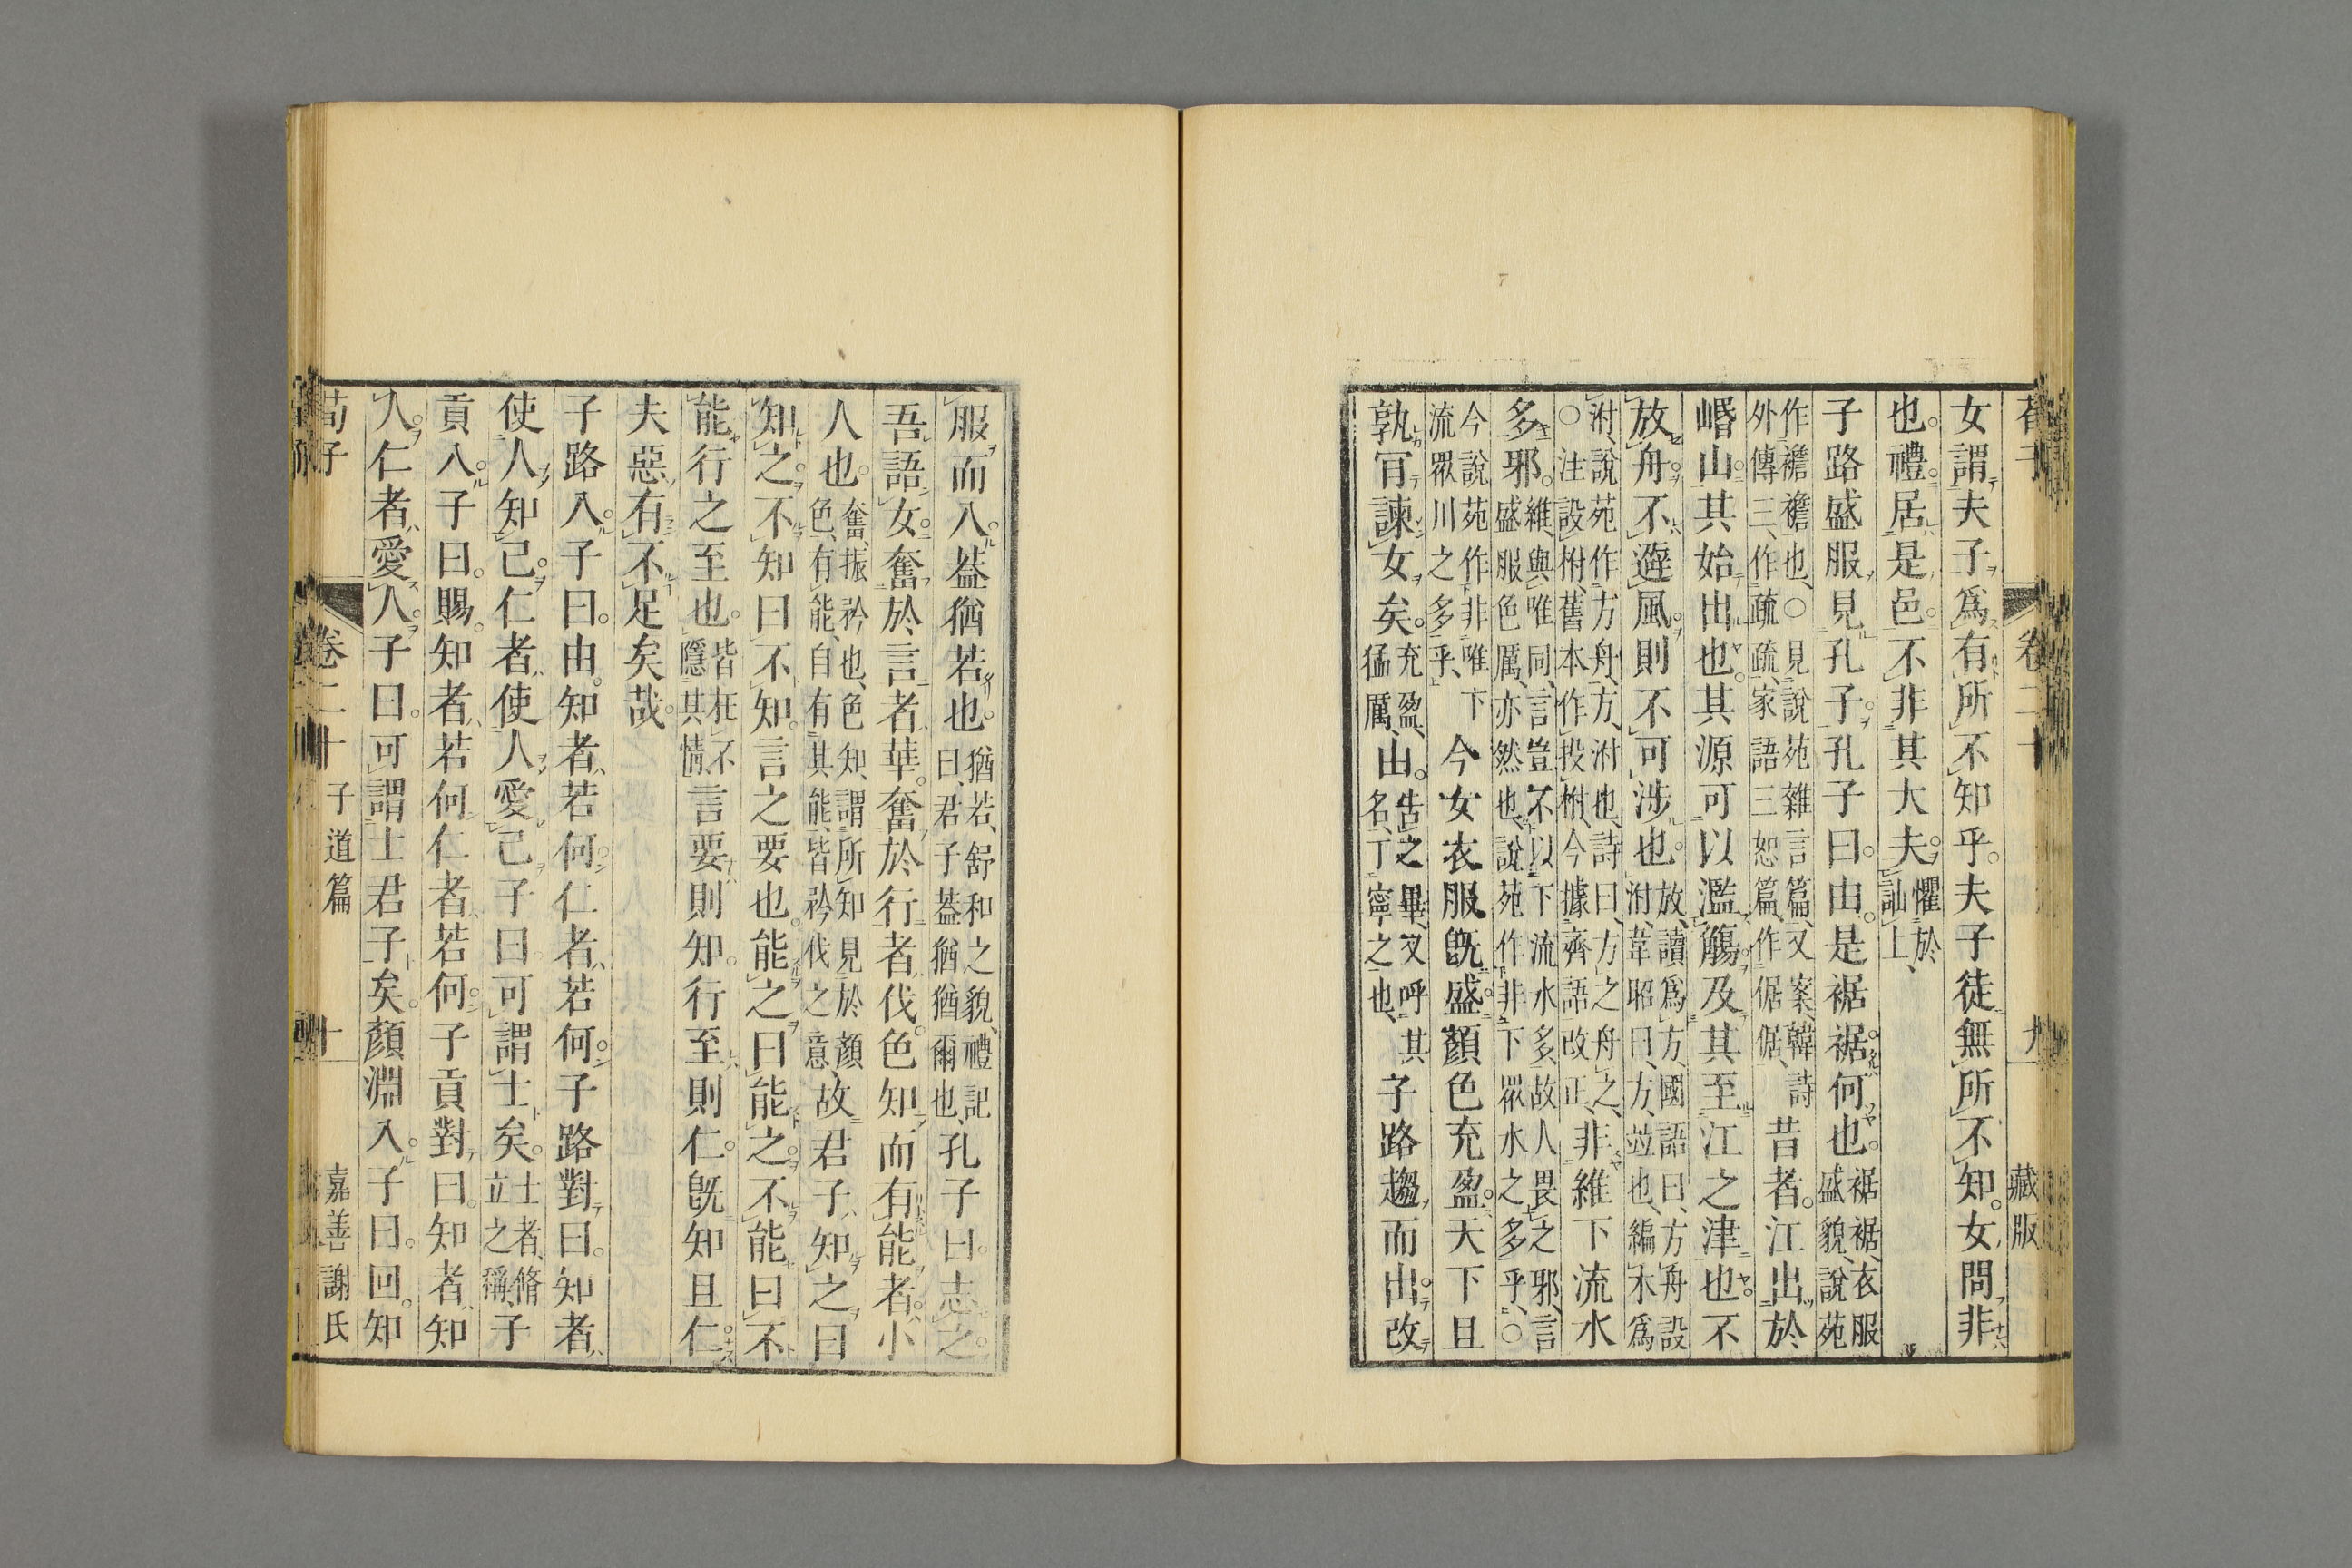 荀子 卷二十 九 藏版
女謂夫子爲有所不知乎。夫子徒無所不知。女問非
也。禮。居是邑。不非其大夫。懼於訕上、
子路盛服見孔子。孔子曰。由。是裾裾何也。裾裾、衣服盛貌、說苑
作襜襜也、○見說苑雜言篇、又案、韓詩外傳三、作疏疏、家語三恕篇、作倨倨、昔者。江出於
㟭山。其始出也。其源可以濫觴。及其至江之津也。不
放舟。不避風。則不可涉也。放、讀爲方、國語曰、方舟設泭、韋昭曰、方、並也、編木爲
泭、說苑作方舟、方、泭也、詩曰、方之舟之、○注設柎、舊本作投柎、今據齊語改正、非維下流水
多邪。維、與唯同、言豈不以下流水多、故人畏之邪、言盛服色厲、亦然也、說苑作非下眾水之多乎、○
今說苑作非唯下流眾川之多乎、今女衣服旣盛。顏色充盈。天下且
孰肎諫女矣。充盈、猛厲、由。告之畢、又呼其名、丁寧之也、子路趨而出。改
服而入。葢猶若也。猶若、舒和之貌、禮記曰、君子葢猶猶爾也、孔子曰。志之。
吾語女。奮於言者華。奮於行者伐。色知而有能者。小
人也。奮、振矜也、色知、謂所知見於顏色、有能、自有其能、皆矜伐之意、故君子知之曰
知之。不知曰不知。言之要也。能之曰能之。不能曰不
能。行之至也。皆在不隱其情、言要則知。行至則仁。旣知且仁。
夫惡有不足矣哉。
子路入。子曰。由。知者若何。仁者若何。子路對曰。知者
使人知己。仁者使人愛己。子曰。可謂士矣。士者、脩立之稱、子
貢入。子曰。賜。知者若何。仁者若何。子貢對曰。知者知
人。仁者愛人。子曰。可謂士君子矣。顏淵入。子曰。回。知
荀子 卷二十 子道篇 十 嘉善謝氏